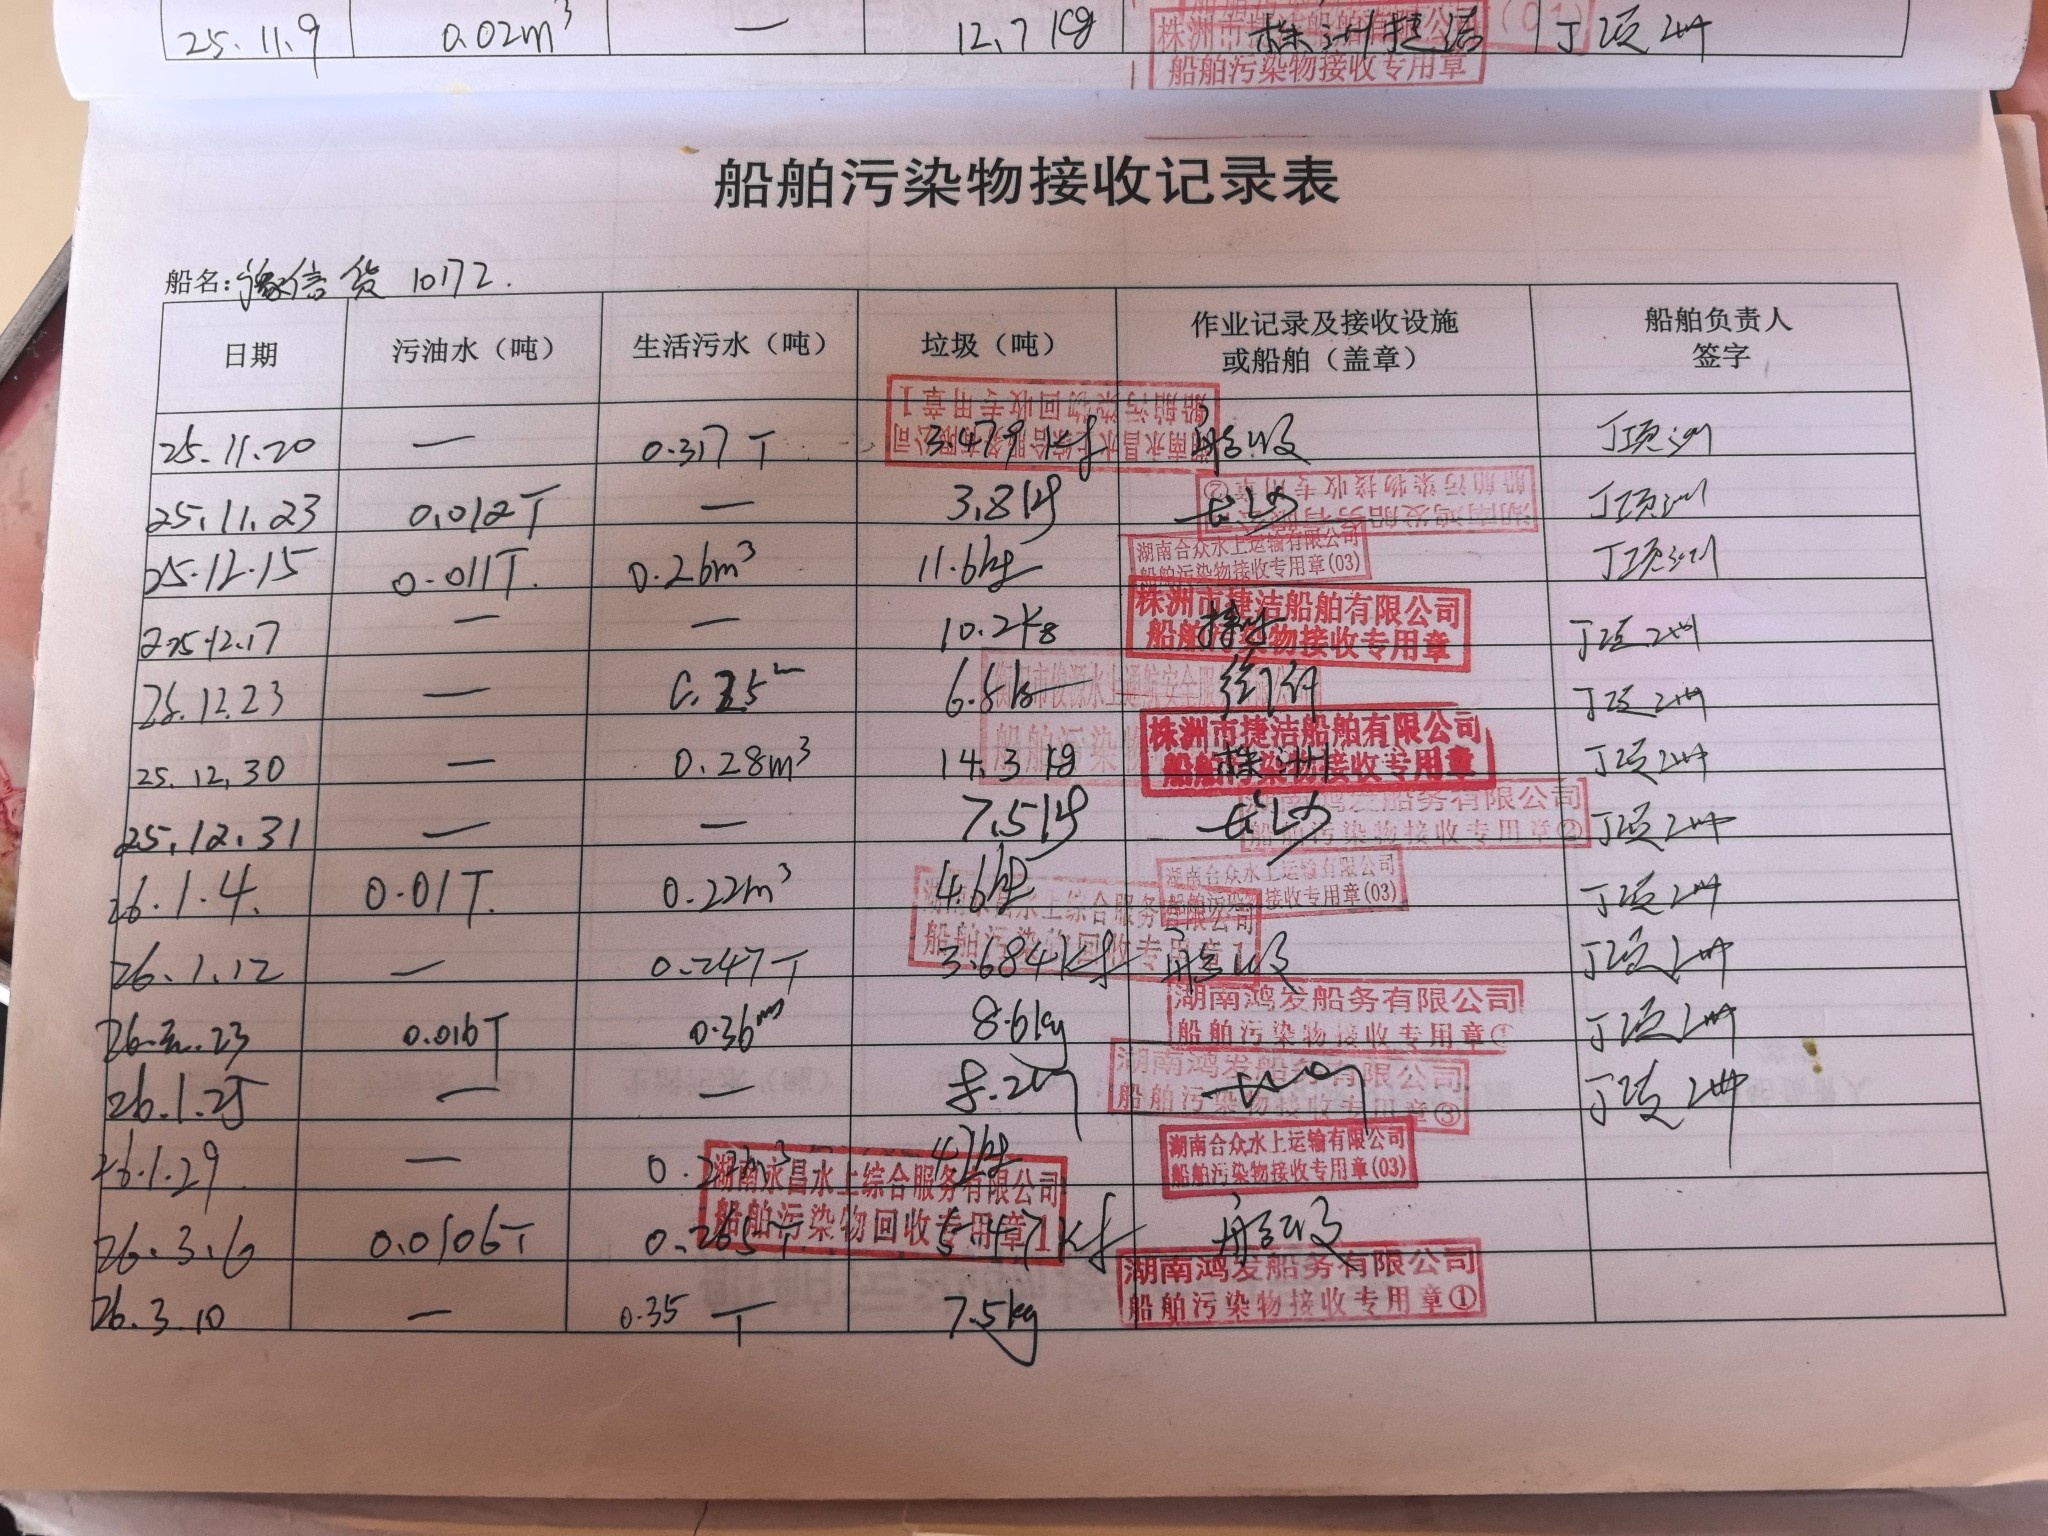 25.11.9 0.02m³ — 12.7kg 株洲捷洁 丁项洲
船舶污染物接收专用章
船舶污染物接收记录表
船名:豫信货10172.
日期 污油水（吨） 生活污水（吨） 垃圾（吨） 作业记录及接收设施或船舶（盖章） 船舶负责人签字
25.11.20 — 0.317T 3.479kg 丁项洲
湖南永昌水上综合服务有限公司
船舶污染物回收专用章1
25.11.23 0.012T — 3.8kg 长沙 丁项洲
湖南鸿发船务有限公司
船舶污染物接收专用章②
25.12.15 0.011T. 0.26m³ 11.6kg 丁项洲
湖南合众水上运输有限公司
船舶污染物接收专用章(03)
25.12.17 — — 10.2kg 株洲 丁项洲
株洲市捷洁船舶有限公司
船舶污染物接收专用章
25.12.23 — 6.8kg 丁项洲
25.12.30 — 0.28m³ 14.3kg 株洲 丁项洲
株洲市捷洁船舶有限公司
船舶污染物接收专用章
25.12.31 — — 7.5kg 长沙 丁项洲
湖南鸿发船务有限公司
船舶污染物接收专用章②
26.1.4. 0.01T. 0.22m³ 4.6kg 丁项洲
湖南合众水上运输有限公司
船舶污染物接收专用章(03)
26.1.12 — 0.247T 3.684kg 丁项洲
湖南永昌水上综合服务有限公司
船舶污染物回收专用章1
0.016T 0.36m³ 8.6kg 丁项洲
湖南鸿发船务有限公司
船舶污染物接收专用章①
26.1.25 — — 8.2kg 长沙 丁项洲
湖南鸿发船务有限公司
船舶污染物接收专用章③
26.1.29 —
湖南合众水上运输有限公司
船舶污染物接收专用章(03)
26.3.6 0.0106T 0.265T 5.47kg
湖南永昌水上综合服务有限公司
船舶污染物回收专用章1
26.3.10 — 0.35T 7.5kg
湖南鸿发船务有限公司
船舶污染物接收专用章①